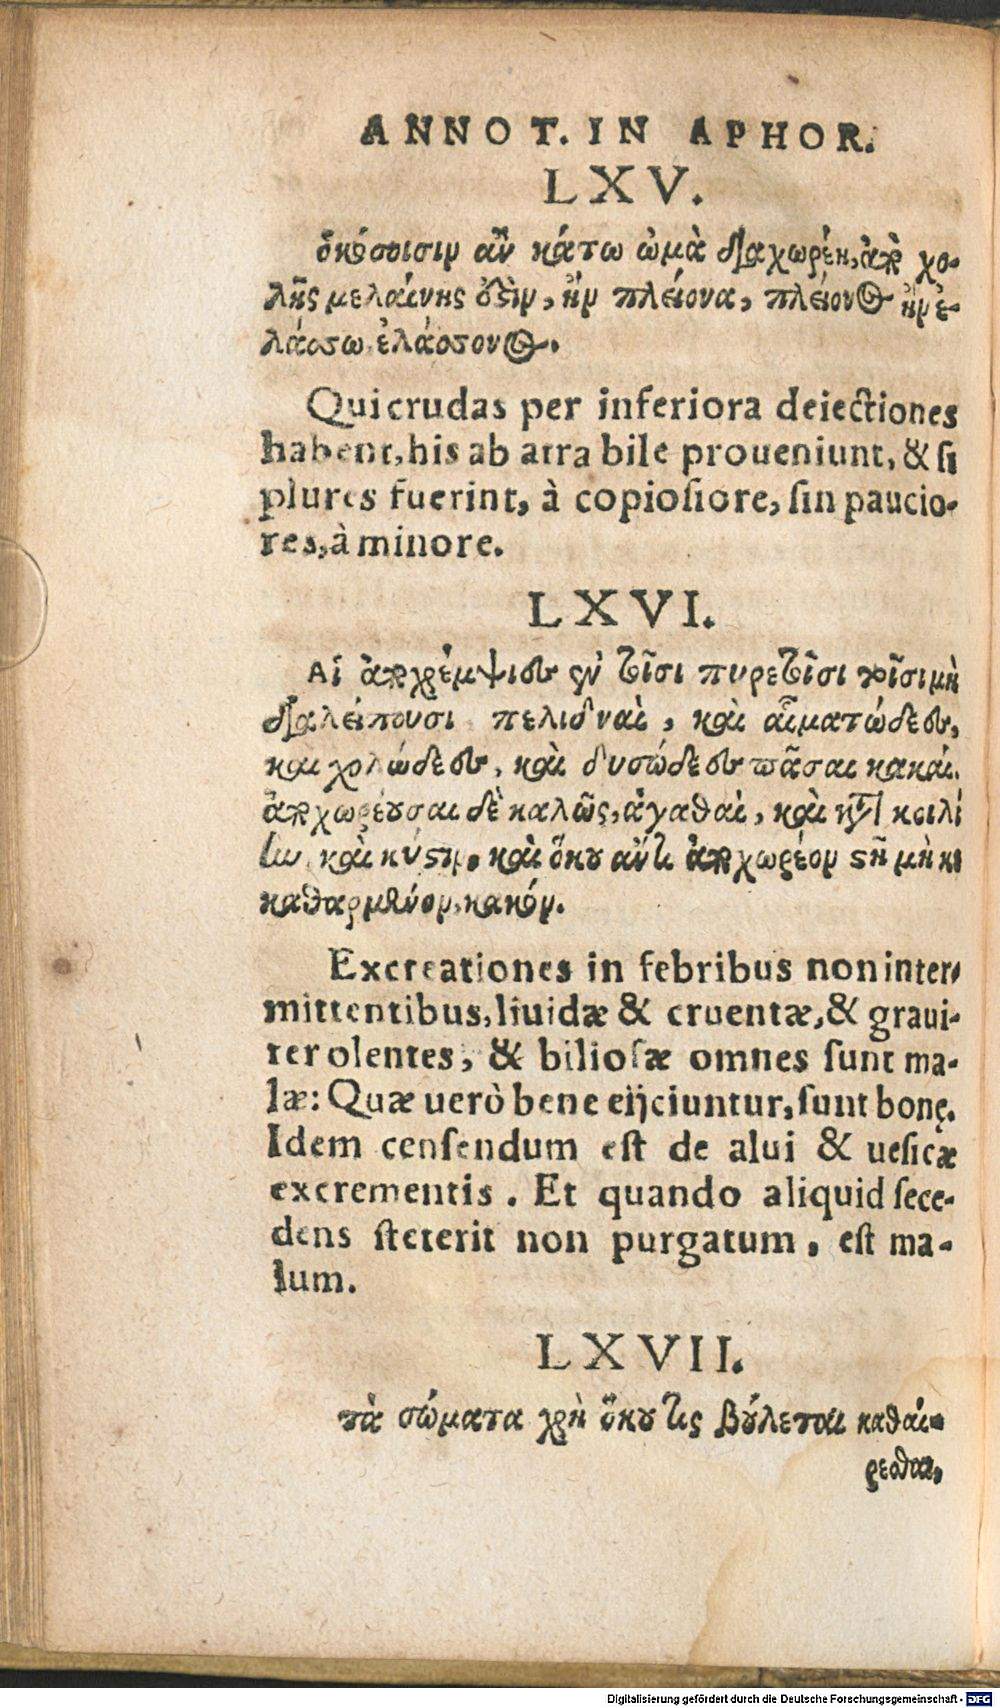 ANNOT. IN APHOR.
LXV.
ὁκόσοισιν ἂν κάτω ὠμὰ διαχωρέῃ, ἀπὸ χο-
λῆς μελαίνης ὅξιν, ἢν πλείονα, πλείονος ἢν ἐ-
λάσσω, ἐλάσσονος.
Qui crudas per inferiora deiectiones
habent, his ab atra bile proueniunt, & si
plures fuerint, à copiosiore, sin paucio-
res, à minore.
LXVI.
Αἱ ἀποχρέμψιες ἐν τοῖσι πυρετοῖσι τοῖσι μὴ
διαλείπουσι πελιδναὶ, καὶ αἱματώδεες,
και χολώδεες, καὶ δυσώδεες πᾶσαι κακαί.
ἀποχωρέουσαι δὲ καλῶς, ἀγαθαὶ, καὶ κατὰ κοιλί
ην, καὶ κύστιν. καὶ ὅκου ἄν τι ἀποχωρέον στῇ μὴ κε
καθαρμένον, κακόν.
Excreationes in febribus non inter-
mittentibus, liuidæ & cruentæ, & graui-
ter olentes, & biliosæ omnes sunt ma-
læ: Quæ uerò bene eijciuntur, sunt bonę.
Idem censendum est de alui & uesicæ
excrementis. Et quando aliquid sece-
dens steterit non purgatum, est ma-
lum.
LXVII.
τὰ σώματα χρὴ ὅκου τις βούλεται καθαί-
ρεσθαι,
Digitalisierung gefördert durch die Deutsche Forschungsgemeinschaft - DFG